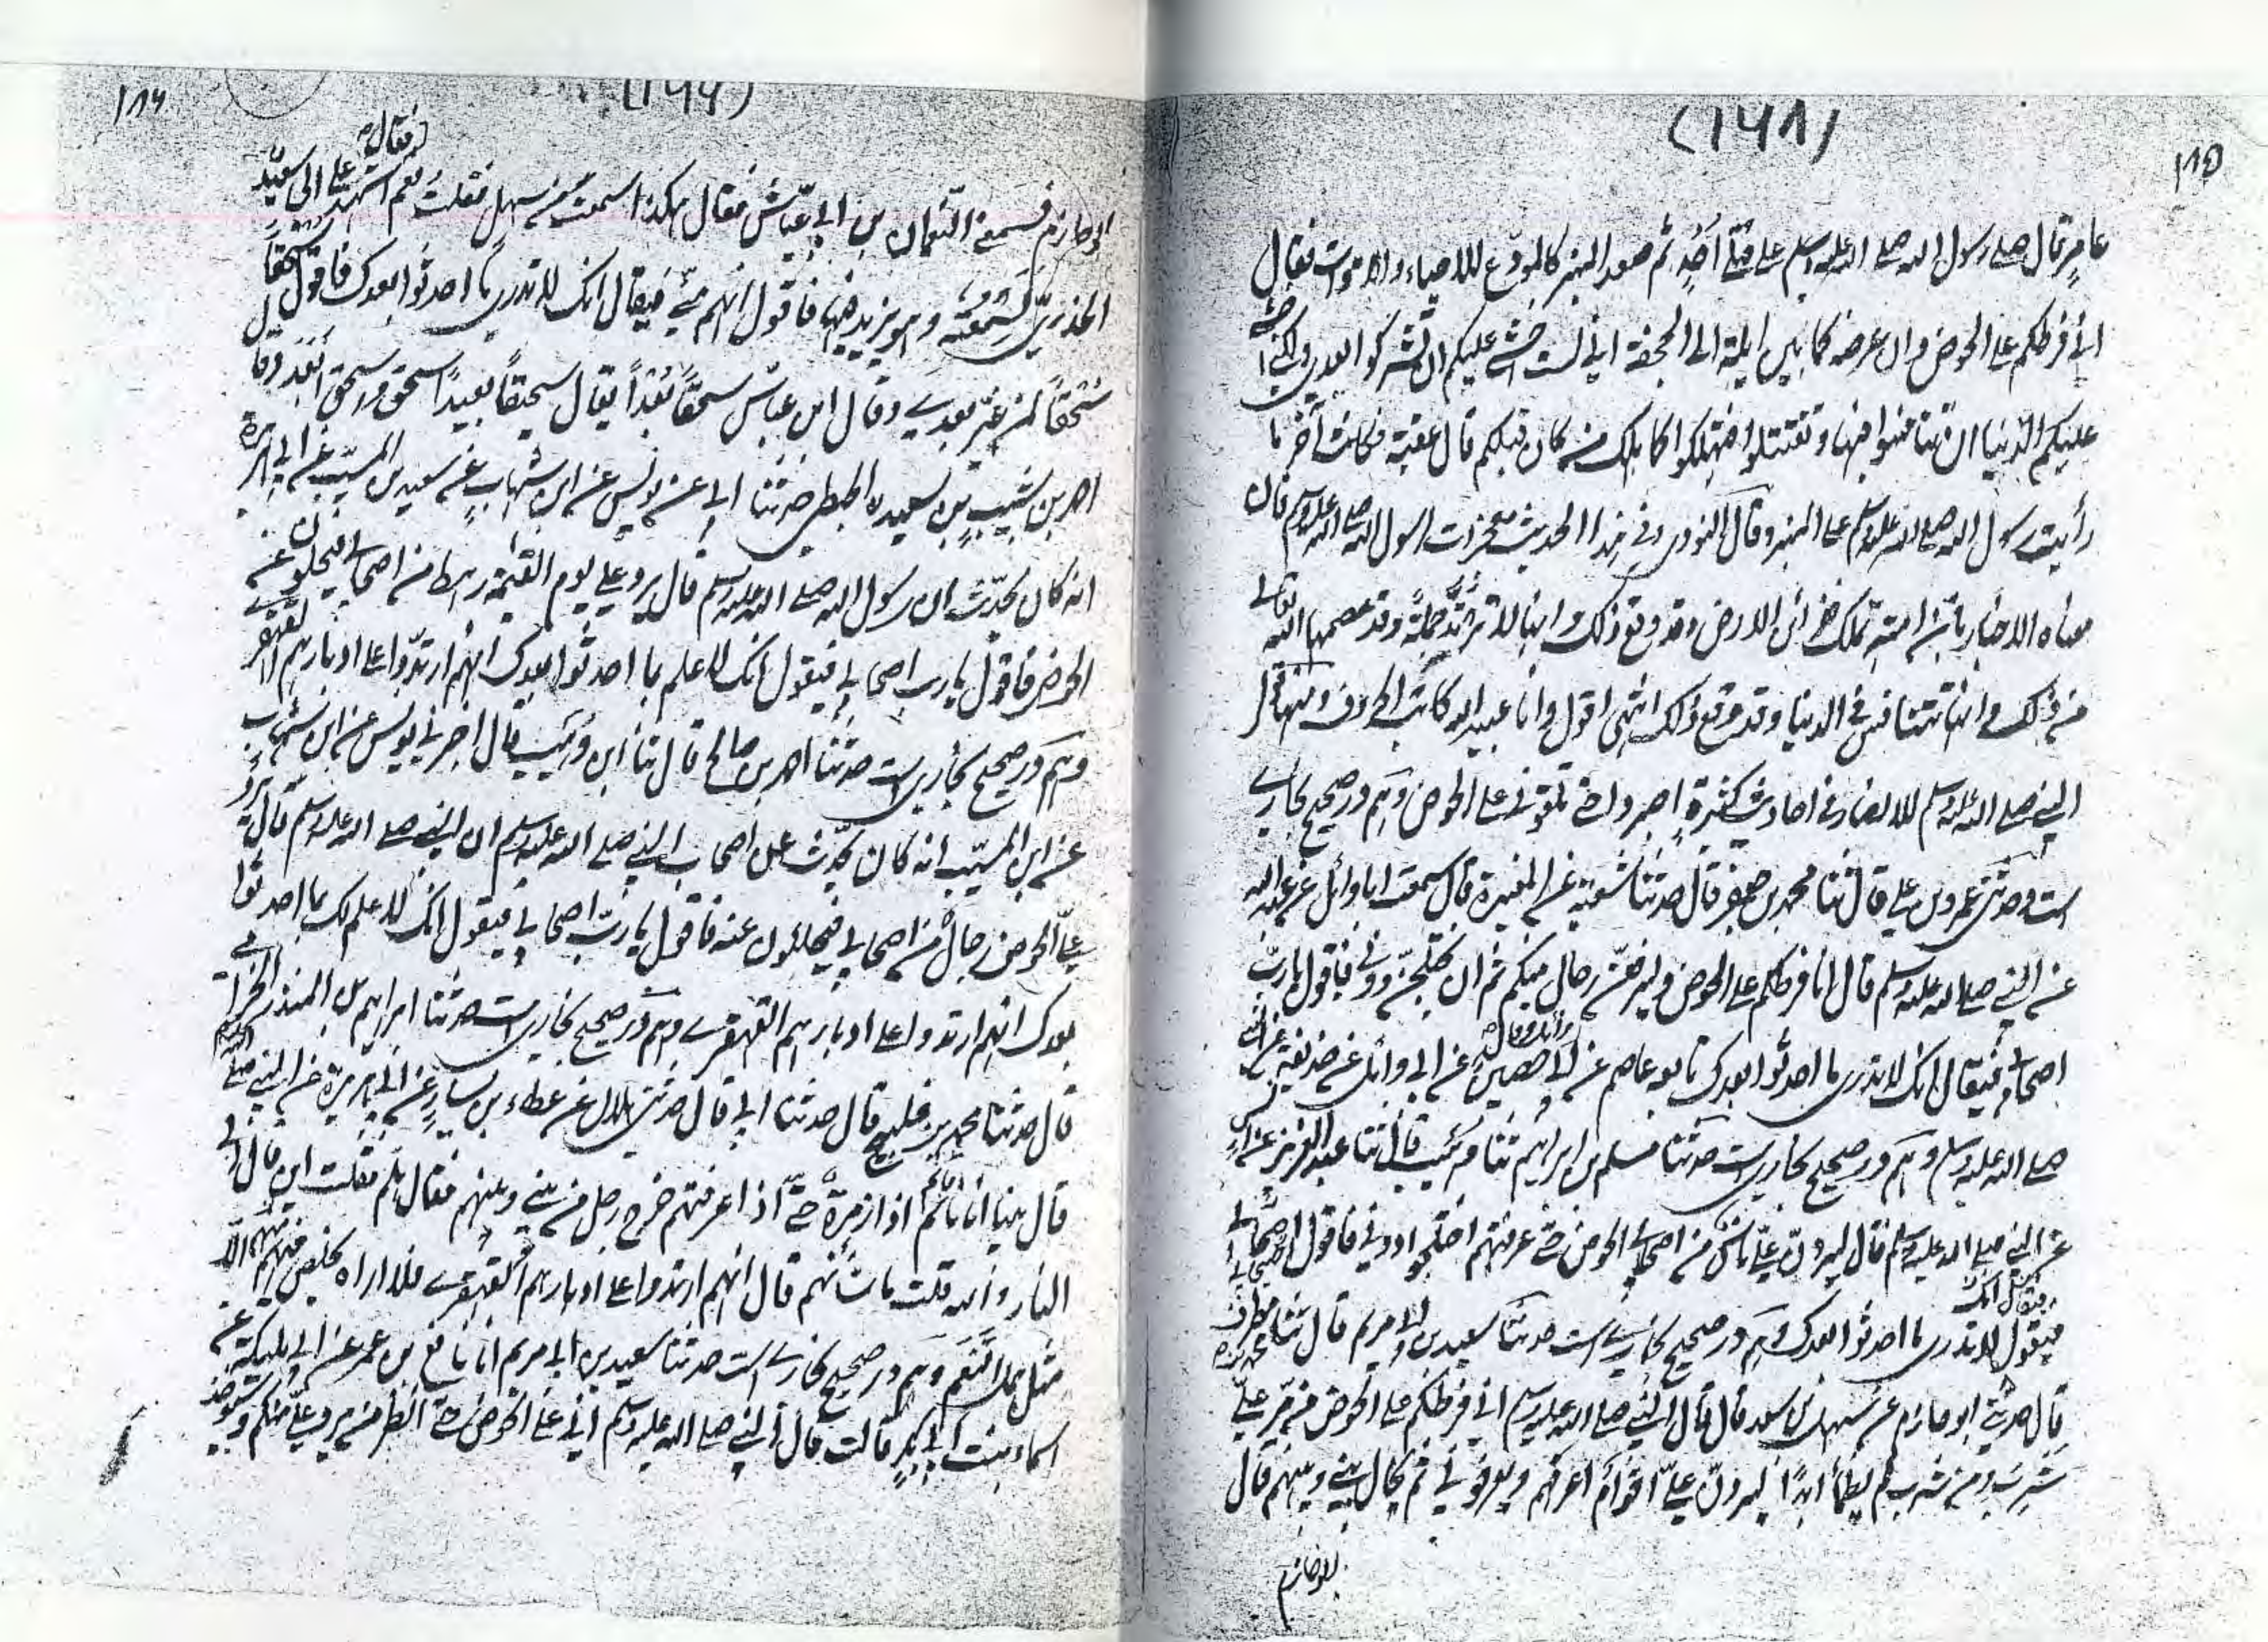 (١٦٨)
١٨٥
عامر قال صلى رسول الله صلى الله عليه وسلم على قتلى أحد ثم صعد المنبر كالمودع للاحياء والاموات فقال
اني فرطكم على الحوض وان عرضه كما بين ايلة الى الجحفة اني لست اخشى عليكم ان تشركوا بعدي ولكني اخشى
عليكم الدنيا ان تتنافسوا فيها وتقتتلوا فتهلكوا كما هلك من كان قبلكم قال عقبة فكانت آخر ما
رأيت رسول الله صلى الله عليه وسلم على المنبر وقال النووي وفي هذا الحديث معجزات لرسول الله صلى الله عليه وسلم فان
معناه الاخبار بان امته تملك خزائن الارض وقد وقع ذلك وانها لا ترتد جملة وقد عصمها الله تعالى
من ذلك وانها تتنافس في الدنيا وقد وقع ذلك انتهى اقول وانا عبيد الله كاتب الحروف
النبي صلى الله عليه وسلم للانصار في احاديث كثيرة اصبروا حتى تلقوني على الحوض وهم در صحيح بخاري
است وحدثني عمرو بن علي قال ثنا محمد بن جعفر قال حدثنا شعبة عن المغيرة قال سمعت ابا وائل عن عبد الله
عن النبي صلى الله عليه وسلم قال انا فرطكم على الحوض وليرفعن رجال منكم ثم ان ليختلجن دوني فاقول يا رب
اصحابي فيقال انك لا تدري ما احدثوا بعدك تابعه عاصم عن ابي وائل وقال حصين عن ابي وائل عن حذيفة عن النبي
صلى الله عليه وسلم وهم در صحيح بخاري است حدثنا مسلم بن ابراهيم ثنا وهيب قال ثنا عبد العزيز عن انس
عن النبي صلى الله عليه وسلم قال ليردن علي ناس من اصحابي الحوض حتى عرفتهم اختلجوا دوني فاقول اصحابي
فيقول لا تدري ما احدثوا بعدك وهم در صحيح بخاري است حدثنا سعيد بن ابي مريم قال ثنا محمد بن مطرف
قال حدثني ابو حازم عن سهل بن سعد قال قال النبي صلى الله عليه وسلم اني فرطكم على الحوض من مر علي
شرب ومن شرب لم يظمأ ابدا ليردن علي اقوام اعرفهم ويعرفوني ثم يحال بيني وبينهم قال
ابو حازم
١٨٦
ابو حازم فسمعني النعمان بن ابي عياش فقال هكذا سمعت من سهل فقلت نعم فقال اشهد على ابي سعيد
الخدري لسمعته وهو يزيد فيها فاقول انهم مني فيقال انك لا تدري ما احدثوا بعدك فاقول سحقا
سحقا لمن غير بعدي وقال ابن عباس سحقا بعدا يقال سحيق بعيد سحقه واسحقه ابعده وقال
احمد بن شبيب بن سعيد الحبطي حدثنا ابي عن يونس عن ابن شهاب عن سعيد بن المسيب عن ابي هريرة
انه كان يحدث ان رسول الله صلى الله عليه وسلم قال يرد علي يوم القيمة رهط من اصحابي فيحلؤن عن
الحوض فاقول يا رب اصحابي فيقول انك لا علم لك بما احدثوا بعدك انهم ارتدوا على ادبارهم القهقرى
وهم در صحيح بخاري است حدثنا احمد بن صالح قال ثنا ابن وهب قال اخبرني يونس عن ابن شهاب
عن ابن المسيب انه كان يحدث عن اصحاب النبي صلى الله عليه وسلم ان النبي صلى الله عليه وسلم قال يرد
علي الحوض رجال من اصحابي فيحلئون عنه فاقول يا رب اصحابي فيقول انك لا علم لك بما احدثوا
بعدك انهم ارتدوا على ادبارهم القهقرى وهم در صحيح بخاري است حدثنا ابراهيم بن المنذر الحزامي
قال حدثنا محمد بن فليح قال حدثنا ابي قال حدثني هلال عن عطاء بن يسار عن ابي هريرة عن النبي صلى الله عليه وسلم
قال بينا انا نائم اذا زمرة حتى اذا عرفتهم خرج رجل من بيني وبينهم فقال هلم فقلت اين قال الى
النار والله قلت ما شأنهم قال انهم ارتدوا على ادبارهم القهقرى فلا اراه يخلص منهم الا
مثل همل النعم وهم در صحيح بخاري است حدثنا سعيد بن ابي مريم انا نافع بن عمر عن ابي مليكة عن
اسماء بنت ابي بكر قالت قال النبي صلى الله عليه وسلم اني على الحوض حتى انظر من يرد علي منكم وسيؤخذ